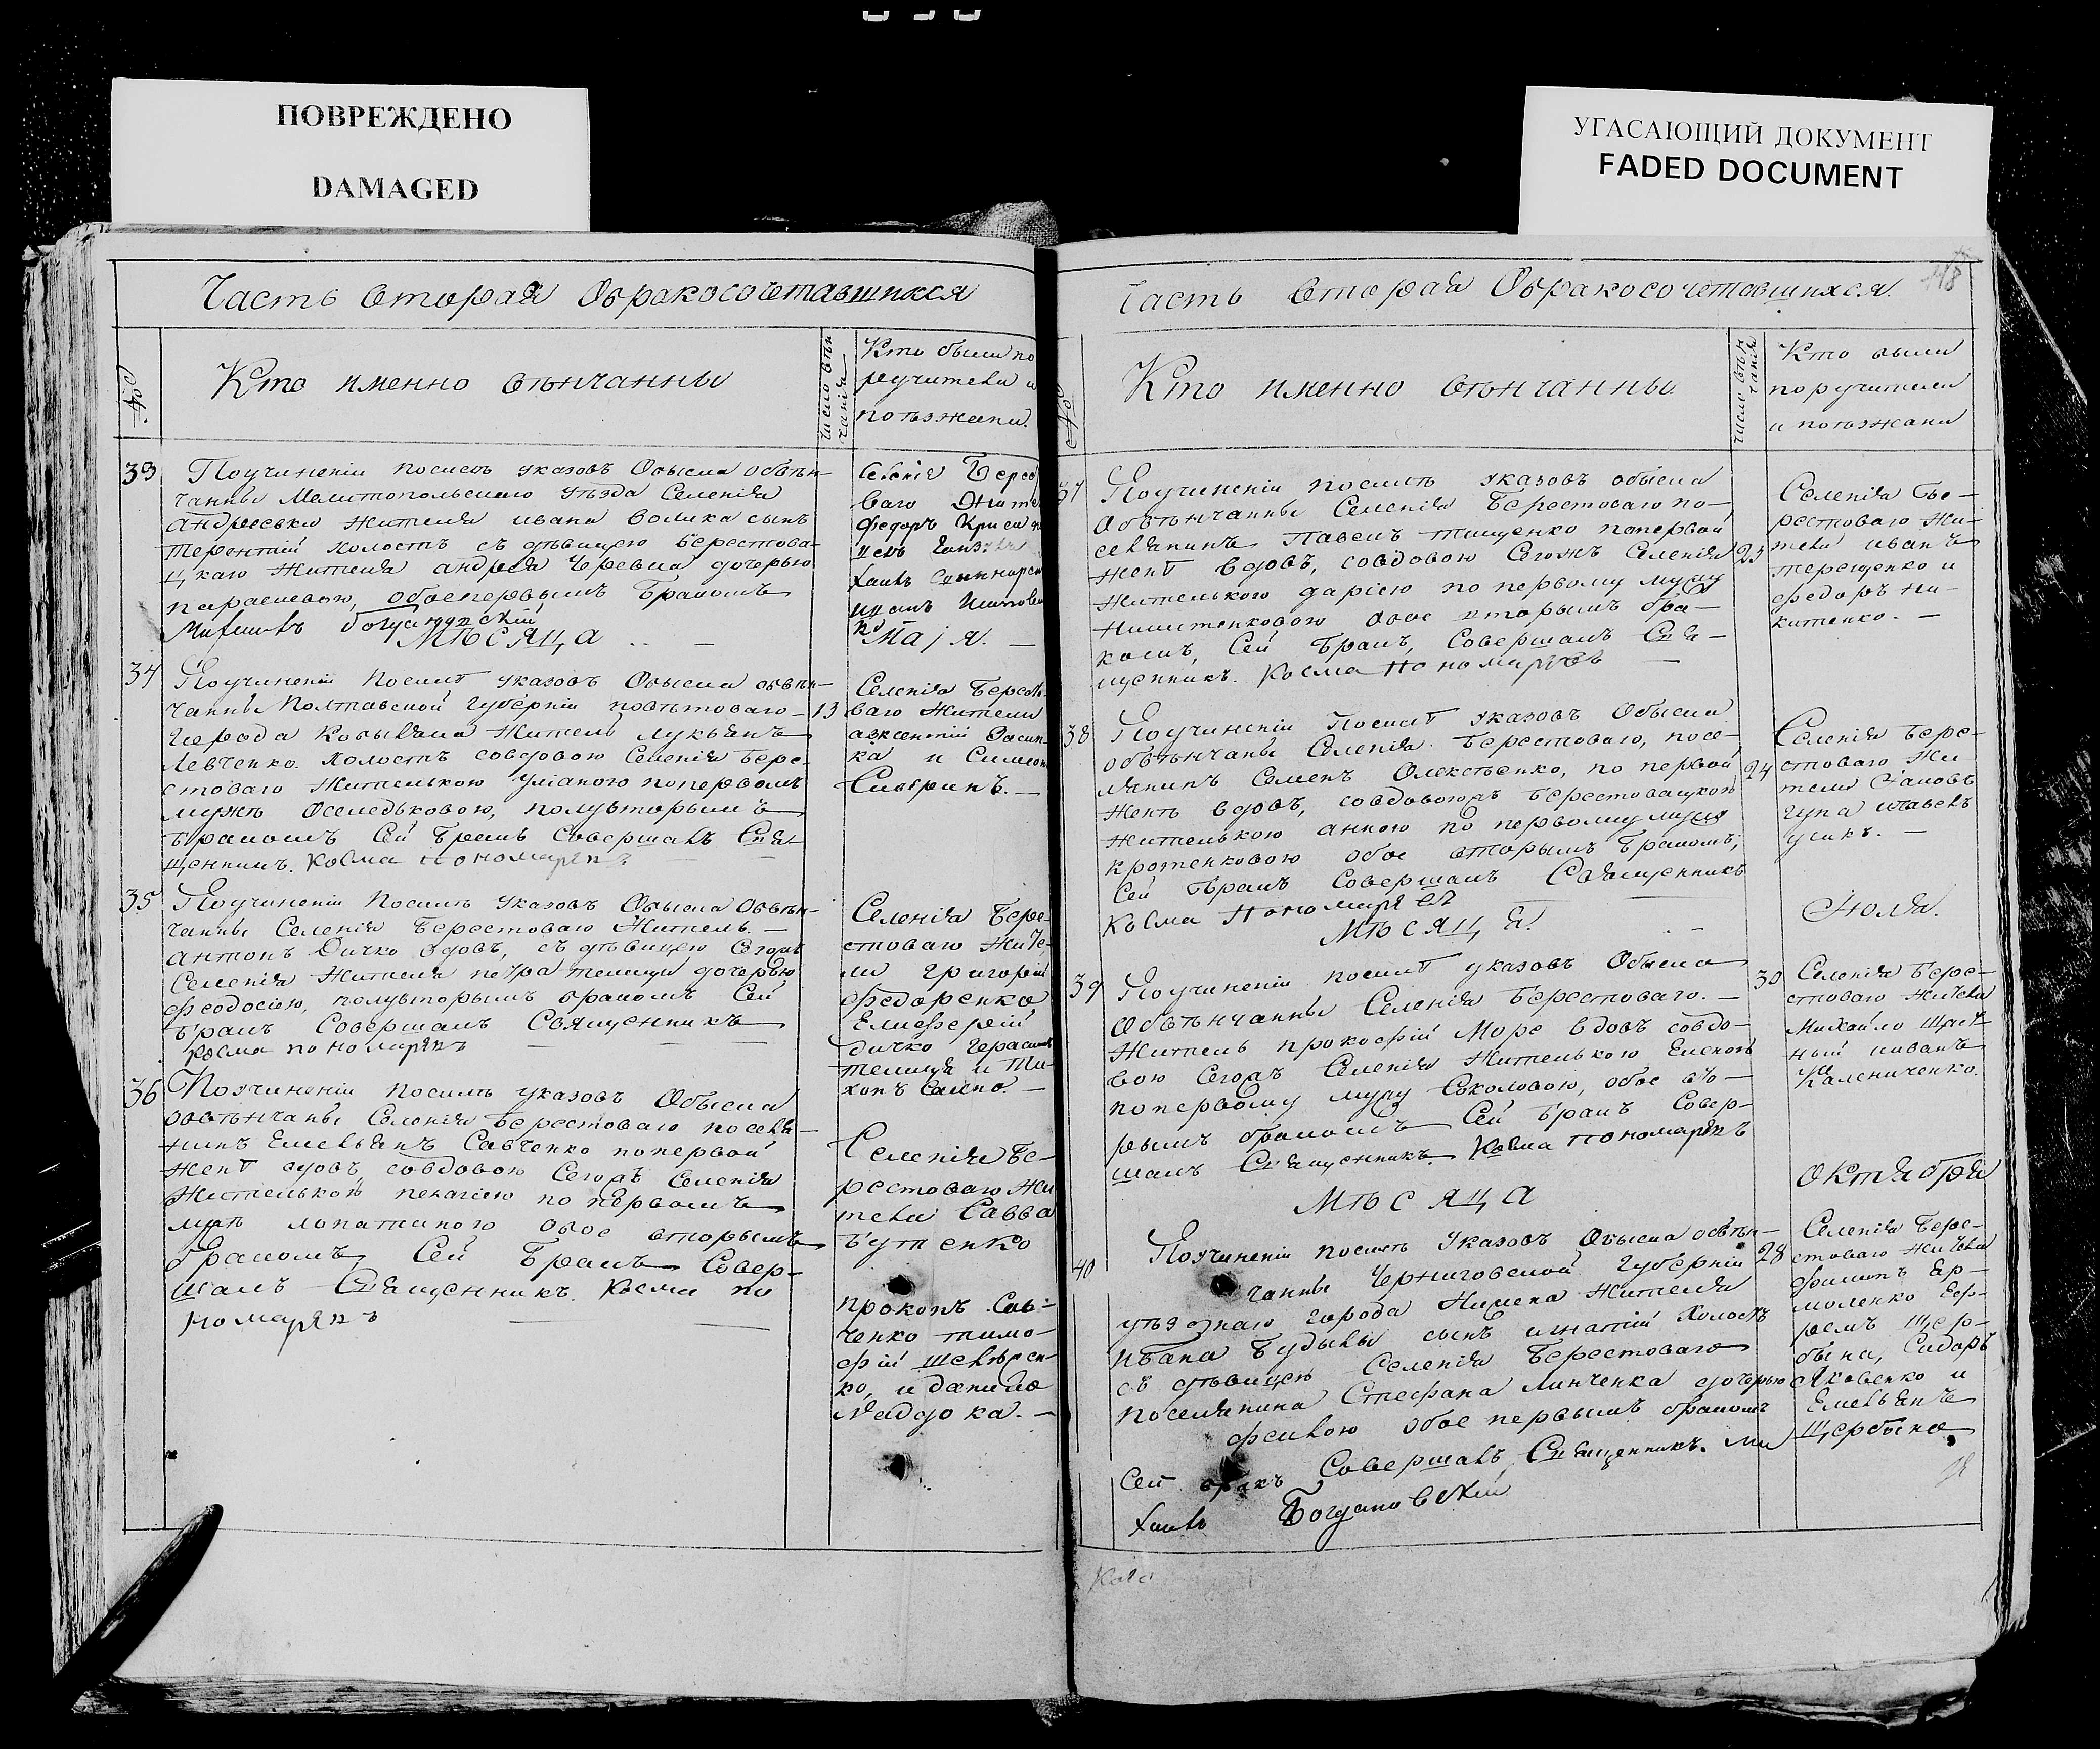 ПОВРЕЖДЕНО
DAMAGED
УГАСАЮЩИЙ ДОКУМЕНТ
FADED DOCUMENT
Часть вторая Обракосочетавшихся
№
Кто именно вѣнчанны
число вѣн
чанія
Кто были по
ручители и
поѣзжани.
33
Поучиненіи посилѣ указовъ Обыска обвѣн-
чанны Мелитопольскаго уѣзда Селенія
андреевки жителя ивана волика сынъ
терентій холостъ съ дѣвицею берестова-
цкаго жителя андрея Черевка дочерью
параскевою, обое первымъ бракомъ
Михаилъ богдановскій
Мѣсяца
Маія.
34
Поучиненіи посилѣ указовъ Обыска обвѣн-
чанны Полтавской губерніи повѣтоваго
города Кобыляка житель лукьянъ
Левченко холостъ совдовою Селенія Бере-
стоваго жителькою уліаною попервомъ
мужѣ Оселедьковою, полувторымъ
бракомъ Сей бракъ Совершалъ Свя-
щенникъ. Косма пономаревъ
13
Селенія Бересто-
ваго жители
авксентій
ка и Симеон
35
Поучиненіи посилѣ указовъ Обыска Обвѣн-
чанны Селенія берестоваго Житель.
антонъ Дичко вдовъ, съ дѣвицею Сегожъ
Селенія жителя петра телици дочерью
феодосіею, полувторымъ бракомъ Сей
бракъ Совершалъ Священникъ
Косма пономаревъ
Селенія Бере-
стоваго жите-
ли григорій
федоренко
Елисферій
дичко герасимъ
телиця и Ти-
хонъ
36
Поучиненіи посилѣ указовъ Обыска
обвѣнчаны Селенія берестоваго поселя-
нинъ Емельянъ Савченко попервой
женѣ вдовъ, совдовою Сегожъ Селенія
жителькою пелагіею по первомъ
мужѣ лопатиною обое вторымъ
бракомъ, Сей бракъ Совер-
шалъ Священникъ. Косма по
номаревъ
Селенія Бе-
рестоваго жи
тели Савва
бутенко
прокопъ Сав-
ченко тимо-
фій
ко, и данило
Часть вторая Обракосочетавшихся.
118
№
Кто именно вѣнчанны.
число вѣн
чанія
Кто были
поручители
и поѣзжани
37
Поучиненіи посилѣ указовъ обыска
обвѣнчанны Селенія берестоваго по-
селянинъ Павелъ тищенко попервой
женѣ вдовъ, совдовою Сегожъ Селенія
жителькою даріею по первому мужу
Никитенковою обое вторымъ бра-
комъ, Сей бракъ, Совершалъ Свя-
щенникъ. Косма пономаревъ
23
Селенія Бе-
рестоваго жи-
тели иванъ
терещенко и
федоръ ни-
китенко.
38
Поучиненіи Посилѣ указовъ Обыска
обвѣнчаны Селенія берестоваго, посе-
лянинъ Семенъ Олексѣенко, по первой
женѣ вдовъ, совдовоюжъ берестовацкою
жителькою анною по первому мужу
кротенковою обое вторымъ бракомъ,
Сей бракъ Совершалъ Священникъ
Косма пономаревъ
24
Селенія бере-
стоваго жи-
тели
Мѣсяца
Іюля.
39
Поучиненіи посилѣ указовъ Обыска
обвѣнчанны Селенія Берестоваго.
житель прокофій Море вдовъ совдо-
вою Сегожъ Селенія жителькою Еленою
попервому мужу Соколовою, обое вто-
рымъ бракомъ Сей бракъ Совер-
шалъ Священникъ. Косма пономаревъ
30
Селенія Бере-
стоваго жители
Михайло
ный иванъ
Калениченко.
Мѣсяца
Октября
40
Поучиненіи посилѣ Указовъ Обыска обвѣн-
чанны Черниговской губерніи
уѣзднаго города Нѣжена жителя
ивана будыка сынъ игнатій холостъ
съ дѣвицею Селенія Берестоваго
поселянина Стефана линченка дочерью
феклою обое первымъ бракомъ
Сей бракъ Совершалъ Священникъ. Ми
хаилъ Богдановскій
28
Селенія бере-
стоваго жители
филипъ Ер-
моленко Еф-
ремъ щер-
бына, Сидоръ
Яковенко и
Емельянъ
щербына